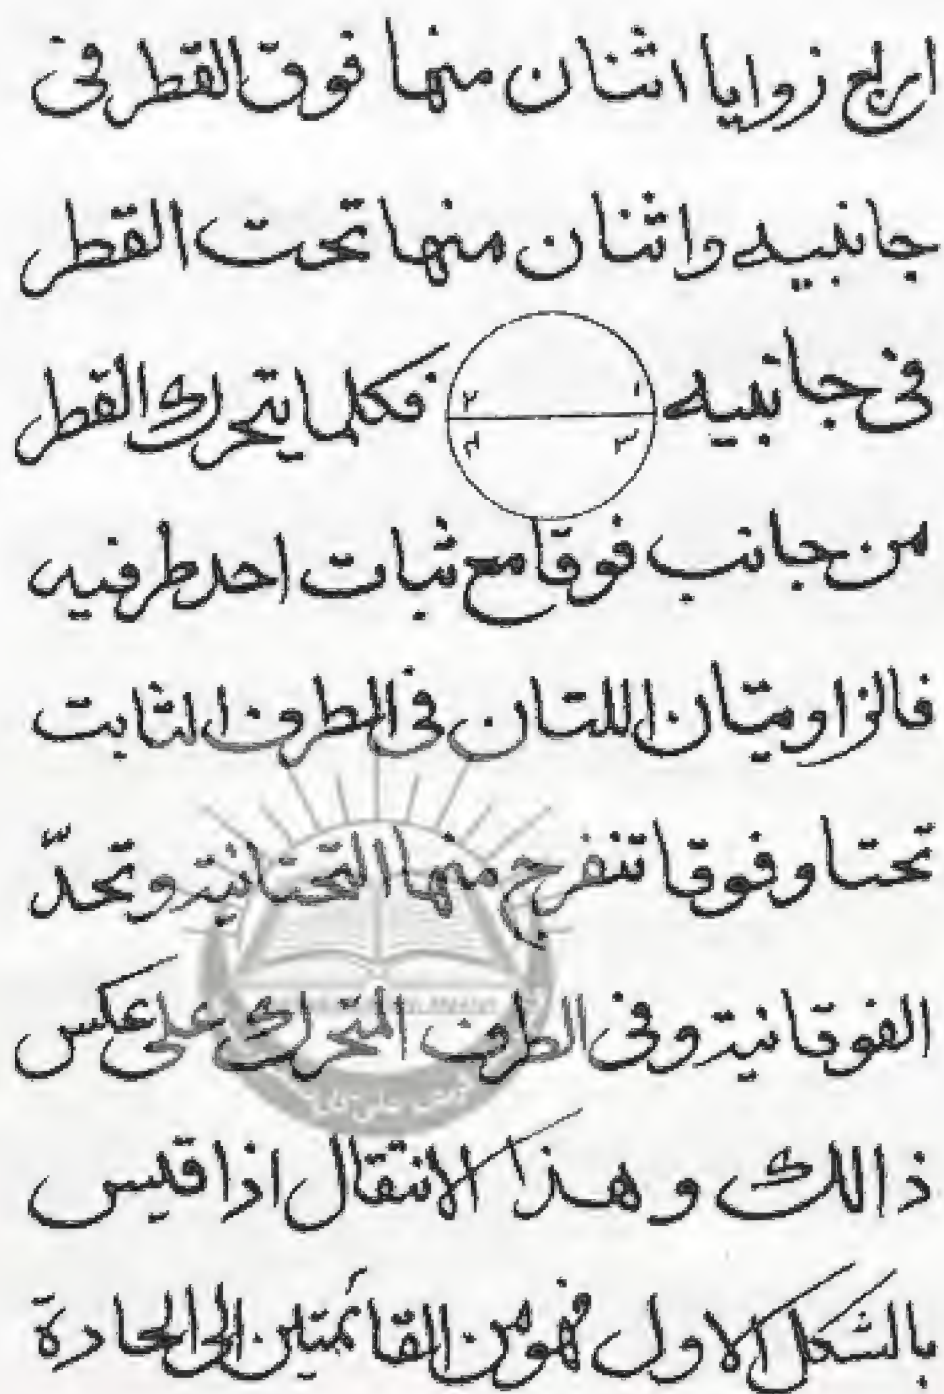 اربع زوايا اثنان منها فوق القطر فى
جانبيه واثنان منها تحت القطر
فى جانبيه ١ ٢ ٣ ٤ فكلما يتحرك القطر
من جانب فوقا مع ثبات احد طرفيه
فالزاويتان اللتان فى الطرف الثابت
تحتا وفوقا تنفرج منها التحتانية وتحدّ
الفوقانية وفى الطرف المتحرك على عكس
ذالك وهذا الانتقال اذا قيس
بالشكل الاول فهو من القائمتين الى الحادة